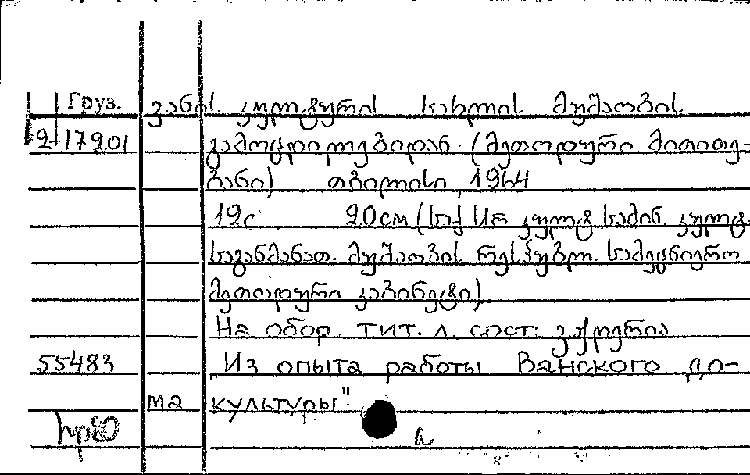 Груз. ვანის კულტურის სახლის მუშაობის
2-17901 გამოცდილებიდან (მეთოდური მითითე-
ბანი) თბილისი, 1964
19с 20см (საქ კულტ სამინ. კულტ.
საგანმანათ. მუშაობის რესპუბლ. სამეცნიერო
მეთოდური კაბინეტი).
На обор. тит. л. сост:
55483 Из опыта работы Ванского до-
ма культуры"